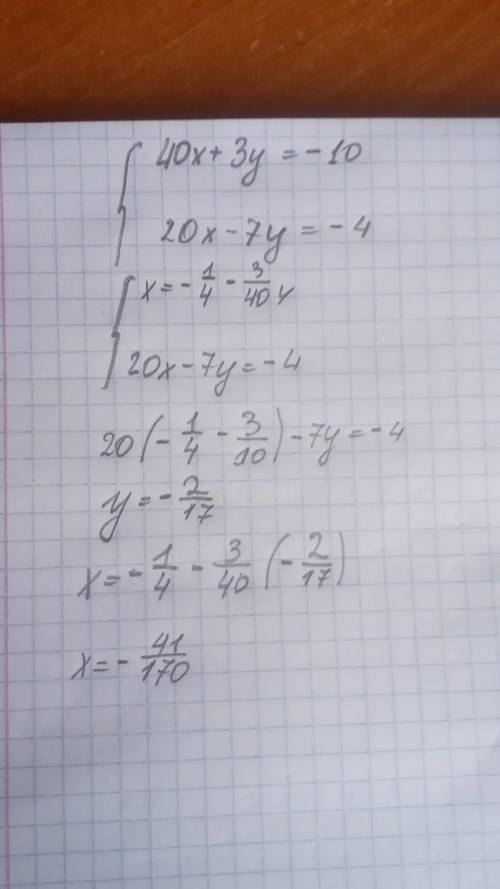 40x + 3y = - 10
20x - 7y = - 4
x = - 1/4 - 3/40 y
20x - 7y = - 4
20 (- 1/4 - 3/10) - 7y = - 4
y = - 2/17
x = - 1/4 - 3/40 (- 2/17)
x = - 41/170